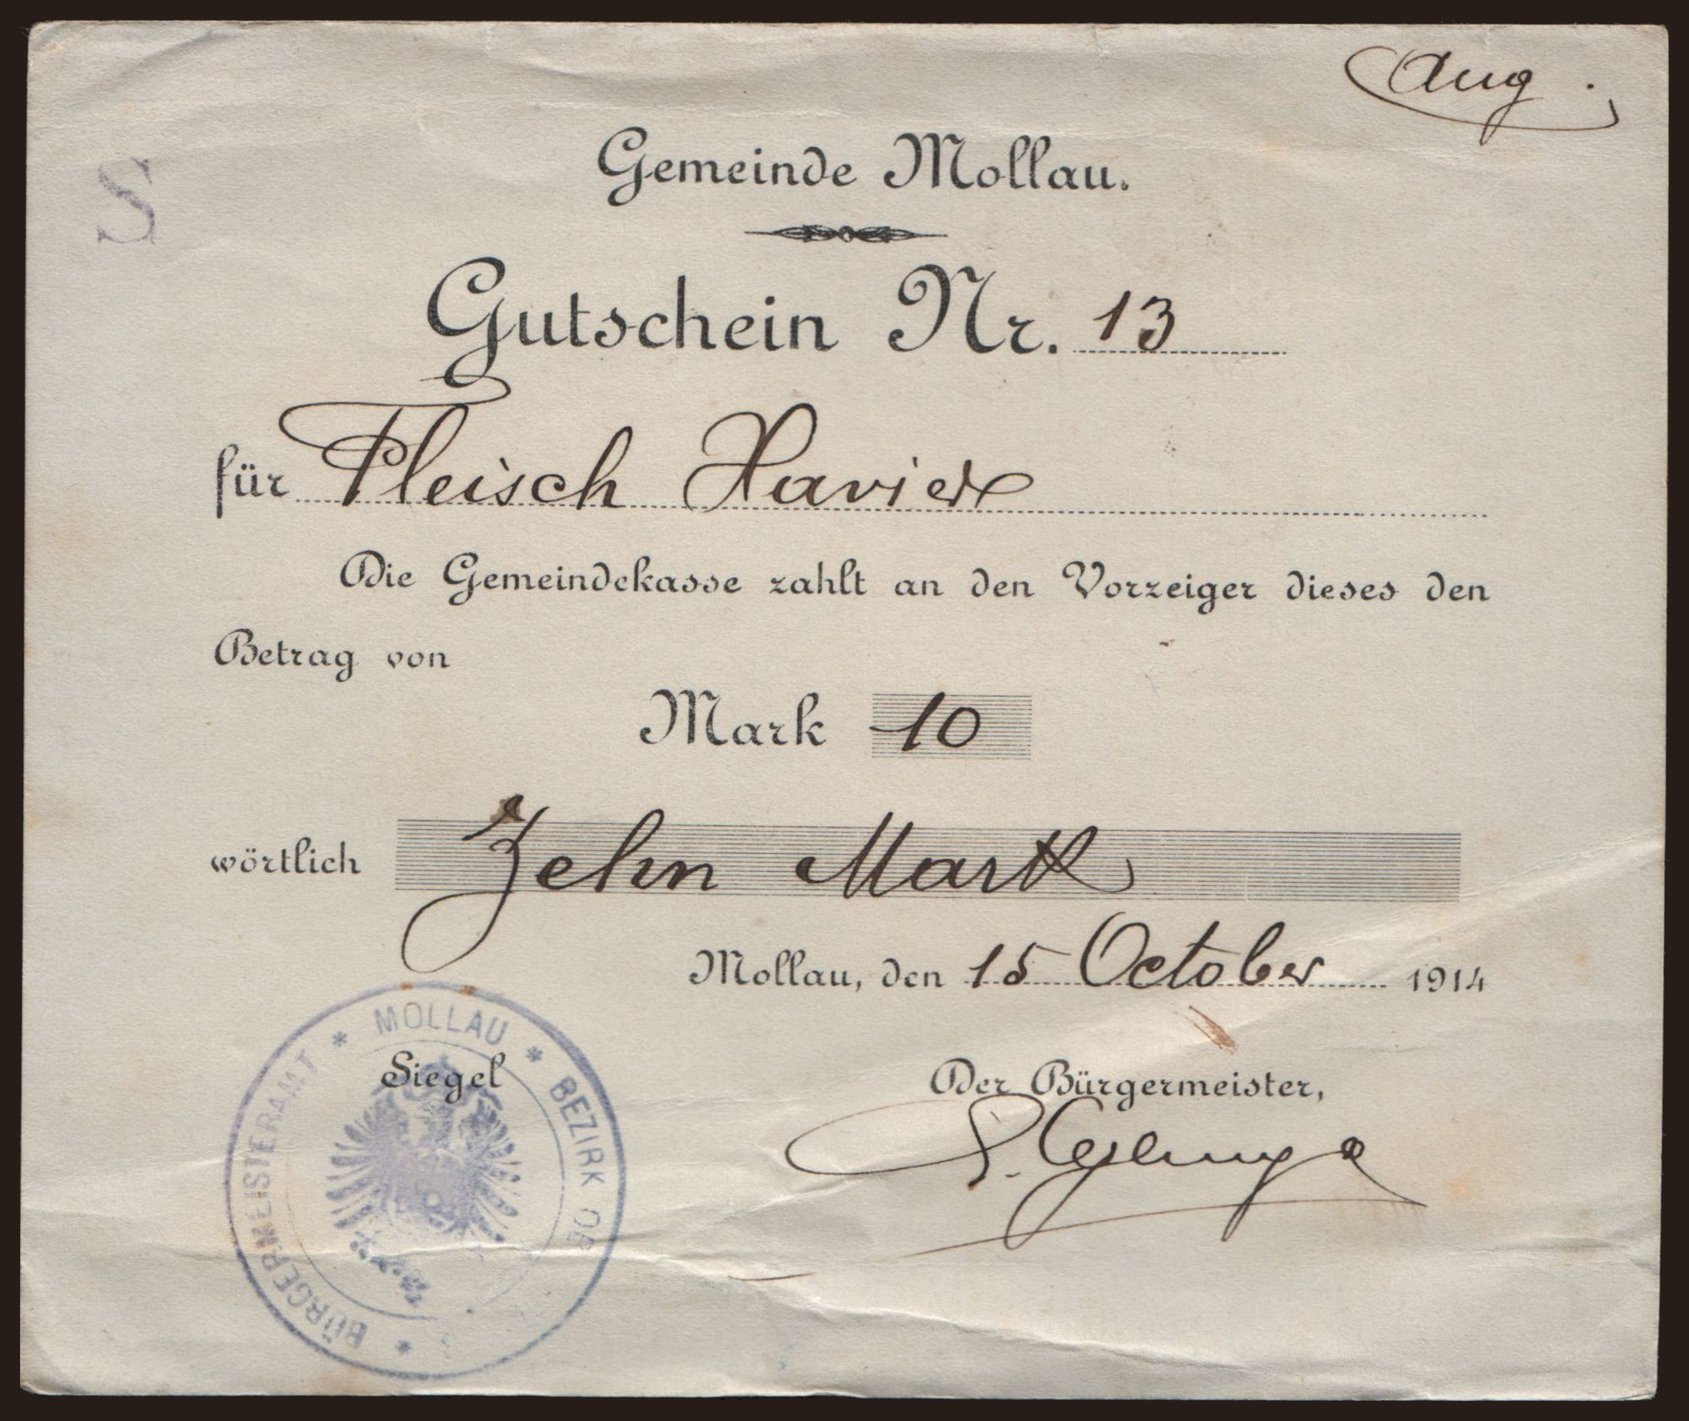 Aug.
S
Gemeinde Mollau.
Gutschein Nr. 13
für Fleisch Xavier
Die Gemeindekasse zahlt an den Vorzeiger dieses den
Betrag von
Mark 10
wörtlich Zehn Mark
Mollau, den 15 October 1914
Siegel
Der Bürgermeister,
BÜRGERMEISTERAMT * MOLLAU * BEZIRK OB